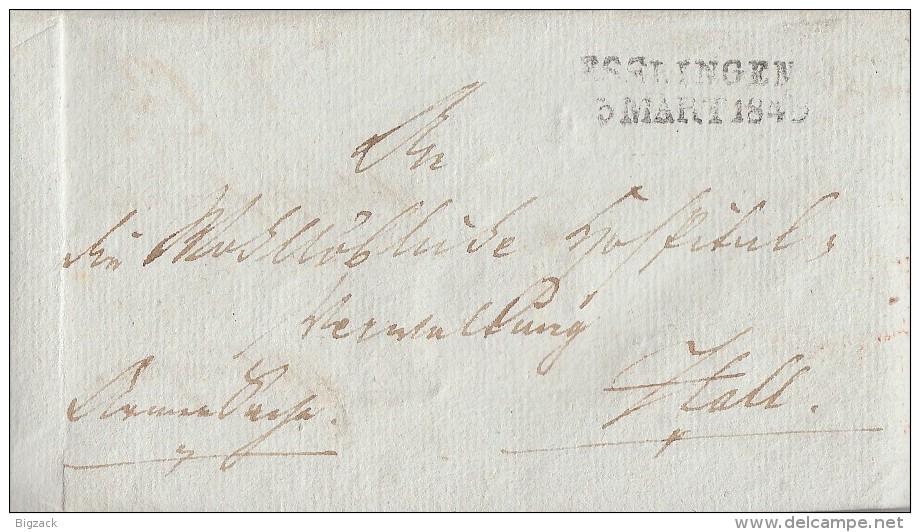 ESSLINGEN
5 MART 1845
An
die Wohllöbliche Hospital-
Verwaltung
Armen Sache.
Hall.
Bigzack
delcampe.net